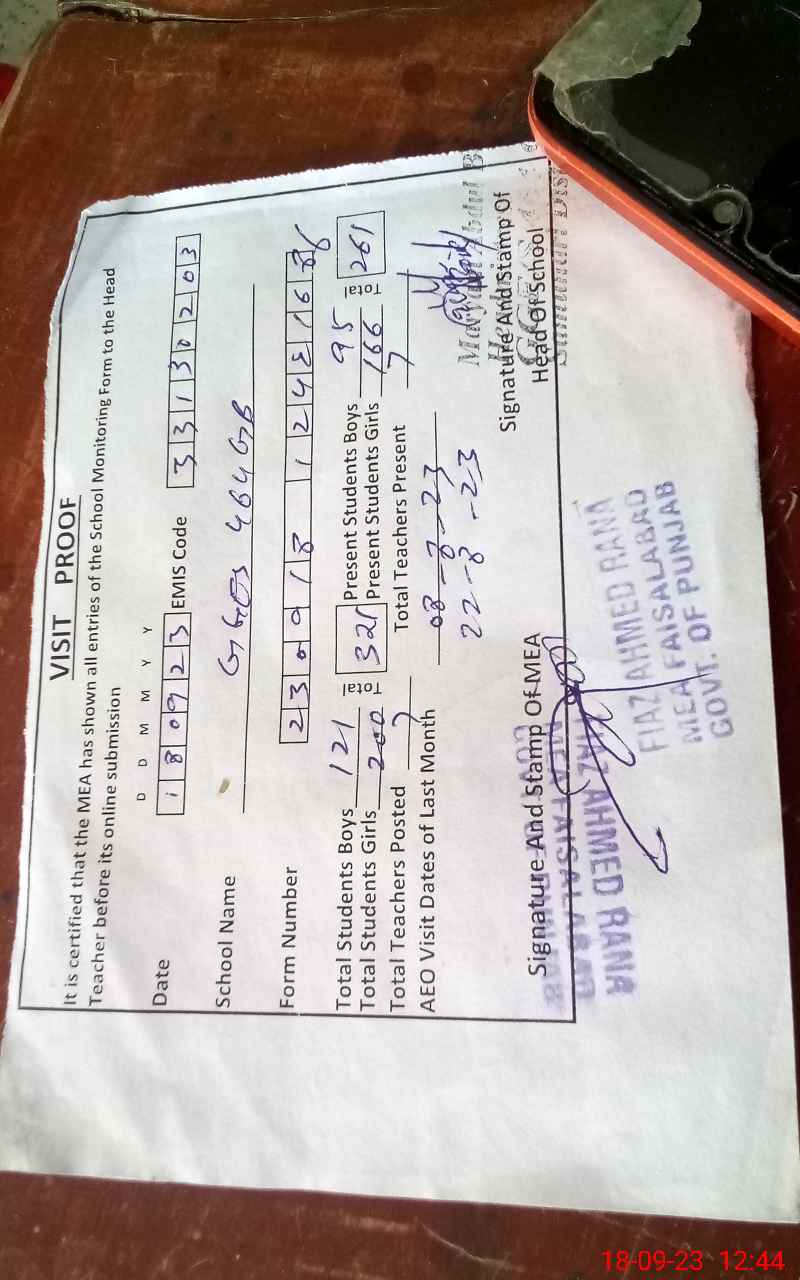 VISIT PROOF
It is certified that the MEA has shown all entries of the School Monitoring Form to the Head
Teacher before its online submission
D D M M Y Y
Date 180923 EMIS Code 33130203
School Name GGES 464 GB
Form Number 230918 1
Total Students Boys 121 Total 321 Present Students Boys 95 Total 261
Total Students Girls 200 Present Students Girls 166
Total Teachers Posted 7 Total Teachers Present 7
AEO Visit Dates of Last Month 08-8-23
22-8-23
Signature And Stamp Of MEA
Signature And Stamp Of
Head Of School
FIAZ AHMED RANA
MEA FAISALABAD
GOVT. OF PUNJAB
FIAZ AHMED RANA
MEA FAISALABAD
18-09-23 12:44